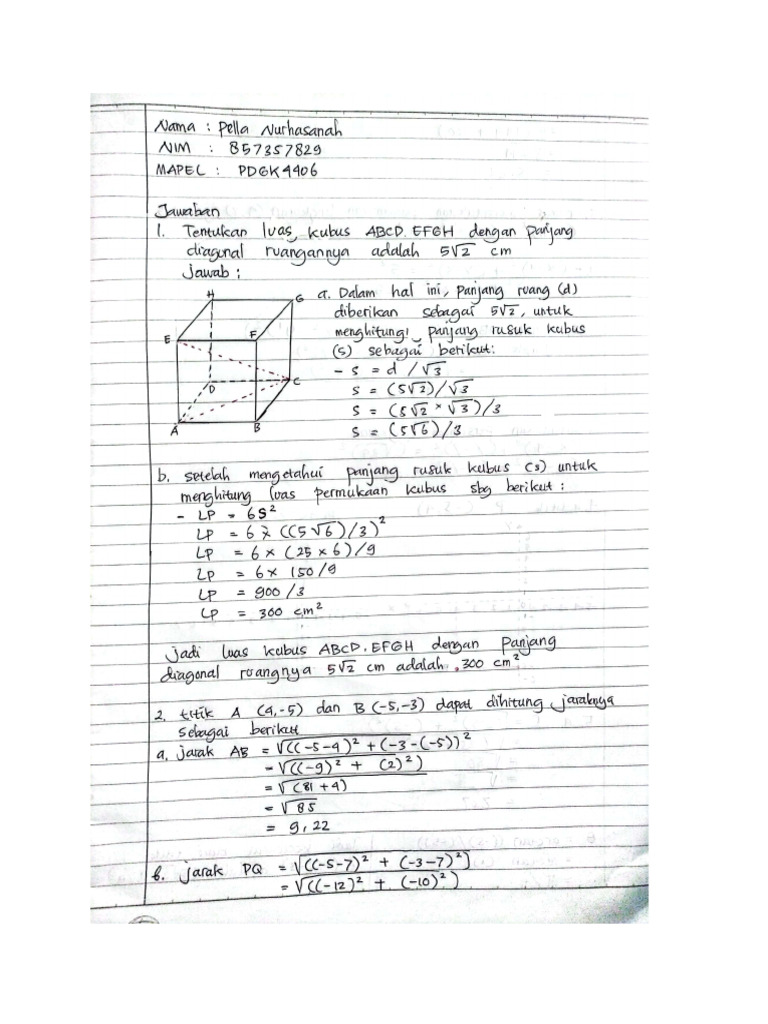 Nama : Pella Nurhasanah
NIM : 857357829
MAPEL : PDGK4406
Jawaban
1. Tentukan luas kubus ABCD.EFGH dengan panjang
diagonal ruangannya adalah 5√2 cm
Jawab :
H
G
E
F
D
C
A
B
a. Dalam hal ini, panjang ruang (d)
diberikan sebagai 5√2, untuk
menghitung panjang rusuk kubus
(s) sebagai berikut:
- s = d /√3
s = (5√2)/√3
s = (5√2 × √3)/3
s = (5√6)/3
b. setelah mengetahui panjang rusuk kubus (s) untuk
menghitung luas permukaan kubus sbg berikut :
- LP = 6S²
LP = 6 × ((5√6)/3)²
LP = 6 × (25 × 6)/9
LP = 6 × 150/9
LP = 900/3
LP = 300 cm²
Jadi luas kubus ABCD.EFGH dengan panjang
diagonal ruangnya 5√2 cm adalah 300 cm²
2. titik A (4,-5) dan B (-5,-3) dapat dihitung jaraknya
sebagai berikut
a. jarak AB = √((-5-4)² + (-3-(-5))²
= √((-9)² + (2)²)
= √(81+4)
= √85
= 9,22
b. jarak PQ = √((-5-7)² + (-3-7)²)
= √((-12)² + (-10)²)